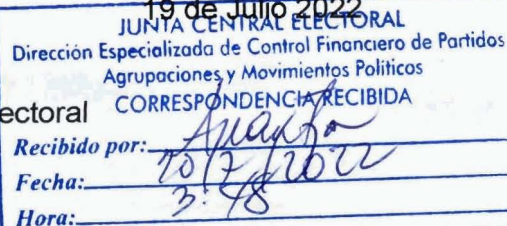 19 de Julio 2022
JUNTA CENTRAL ELECTORAL
Dirección Especializada de Control Financiero de Partidos
Agrupaciones y Movimientos Políticos
CORRESPONDENCIA RECIBIDA
ectoral
Recibido por:
Fecha: 20/7/2022
Hora: 3:48